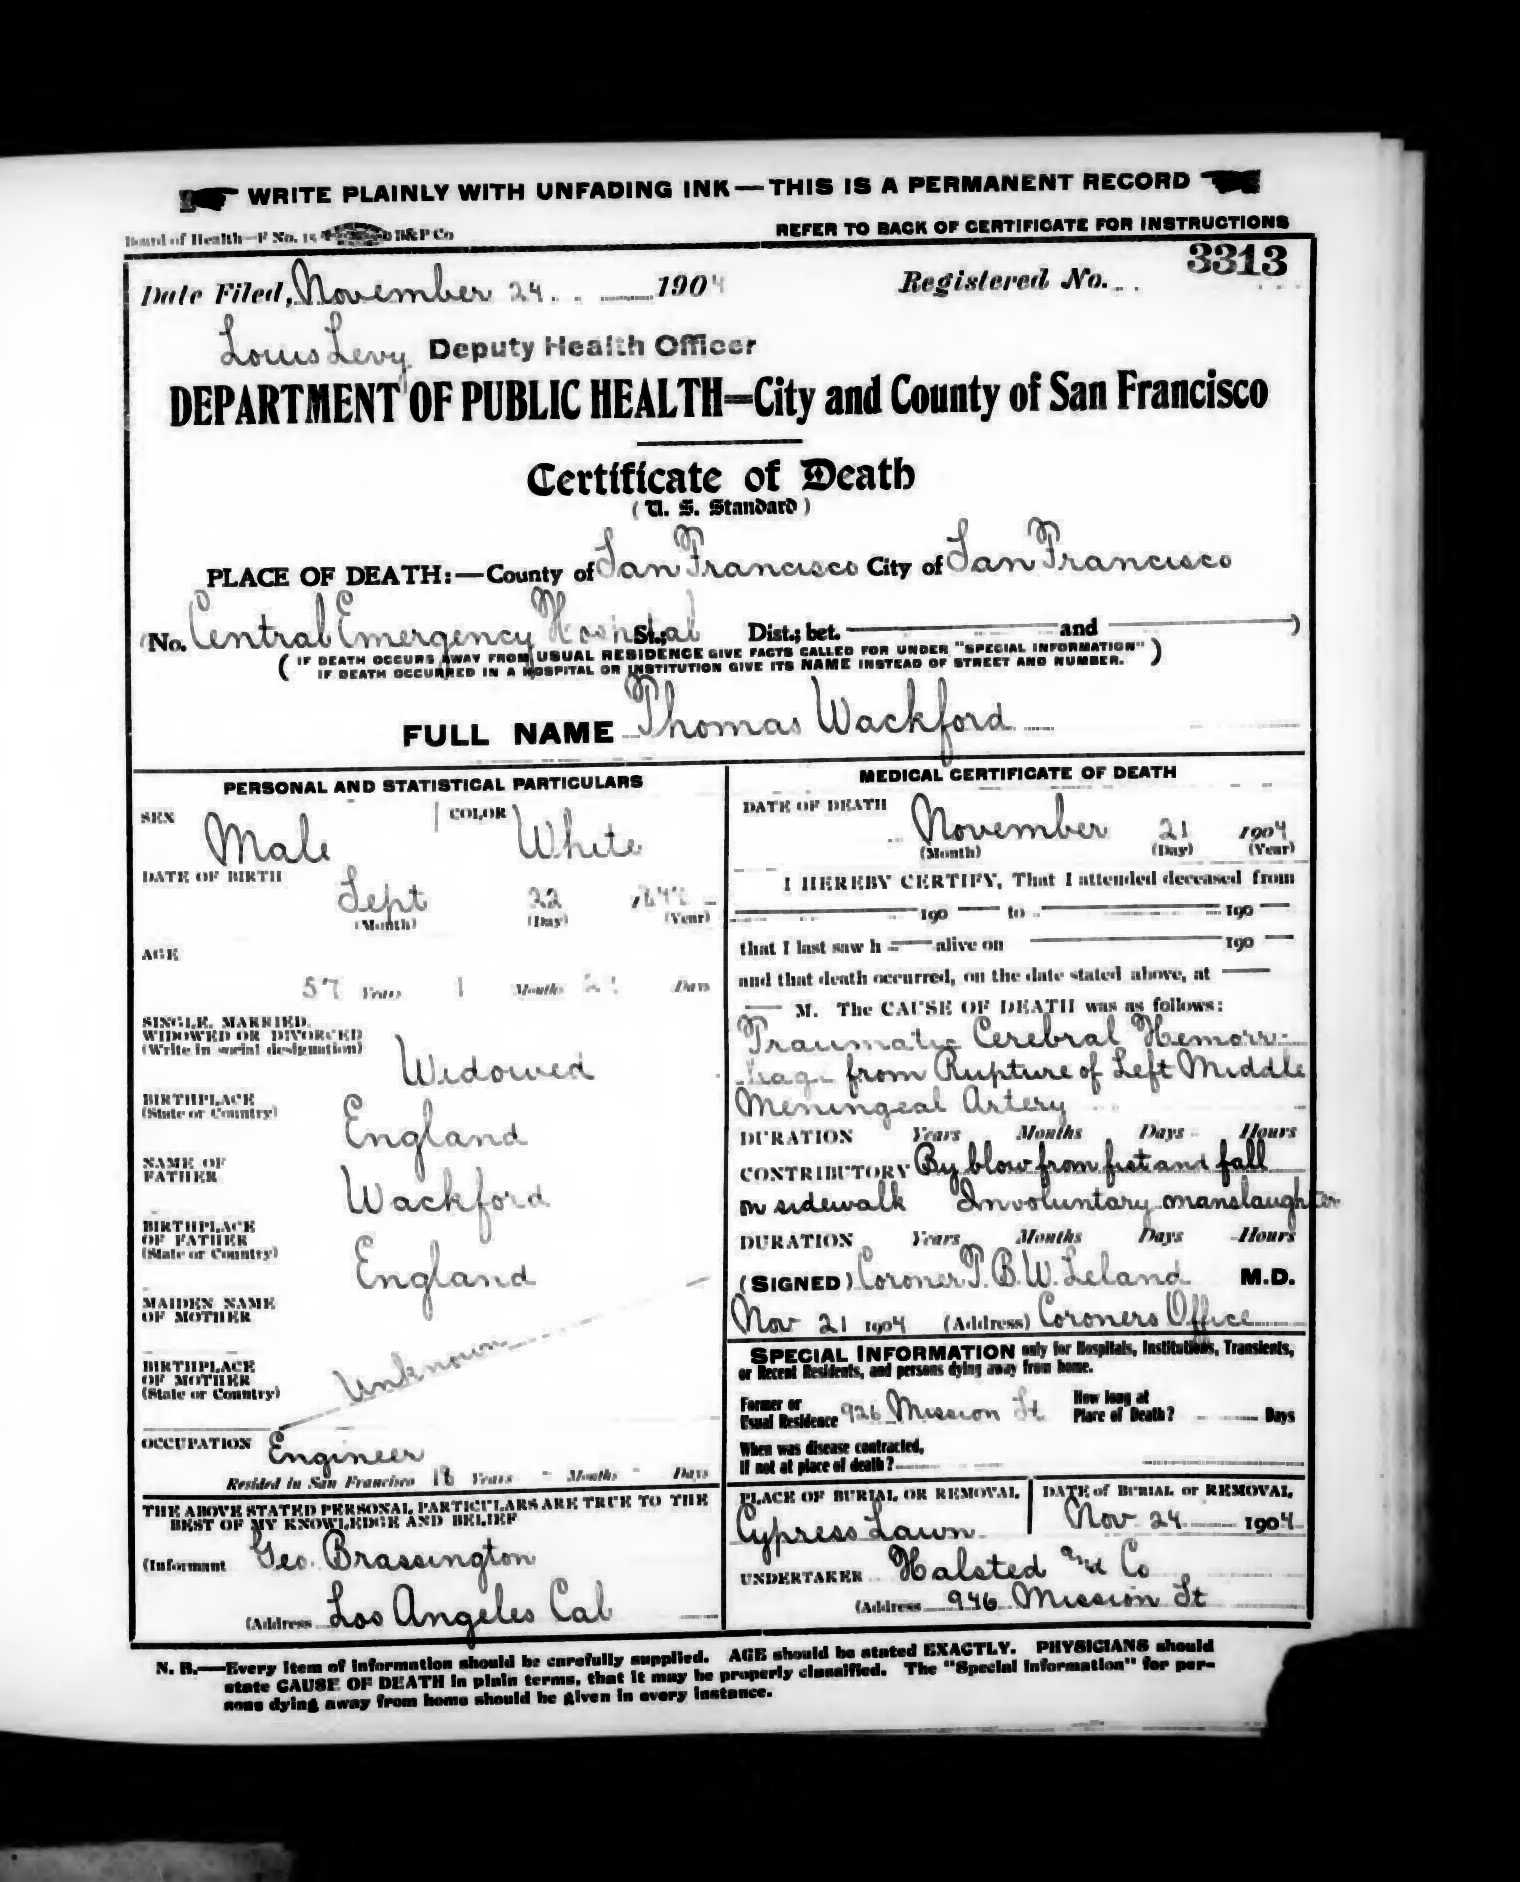 WRITE PLAINLY WITH UNFADING INK—THIS IS A PERMANENT RECORD
Board of Health—F No. 15 B&P Co
REFER TO BACK OF CERTIFICATE FOR INSTRUCTIONS
Date Filed, November 24 1904 Registered No. 3313
Louis Levy Deputy Health Officer
DEPARTMENT OF PUBLIC HEALTH—City and County of San Francisco
Certificate of Death
(U. S. Standard)
PLACE OF DEATH:—County of San Francisco City of San Francisco
(No. Central Emergency Hospital St.; Dist.; bet. and )
( IF DEATH OCCURS AWAY FROM USUAL RESIDENCE GIVE FACTS CALLED FOR UNDER "SPECIAL INFORMATION" )
IF DEATH OCCURRED IN A HOSPITAL OR INSTITUTION GIVE ITS NAME INSTEAD OF STREET AND NUMBER.
FULL NAME Thomas Wackford
PERSONAL AND STATISTICAL PARTICULARS
SEX Male COLOR White
DATE OF BIRTH
Sept 22
(Month) (Day) (Year)
AGE
57 Years 1 Months Days
SINGLE, MARRIED,
WIDOWED OR DIVORCED
(Write in social designation)
Widowed
BIRTHPLACE
(State or Country)
England
NAME OF
FATHER
Wackford
BIRTHPLACE
OF FATHER
(State or Country)
England
MAIDEN NAME
OF MOTHER
BIRTHPLACE
OF MOTHER
(State or Country)
Unknown
OCCUPATION Engineer
Resided in San Francisco 18 Years - Months - Days
THE ABOVE STATED PERSONAL PARTICULARS ARE TRUE TO THE
BEST OF MY KNOWLEDGE AND BELIEF
(Informant Geo. Brassington
(Address Los Angeles Cal
MEDICAL CERTIFICATE OF DEATH
DATE OF DEATH
November 21 1904
(Month) (Day) (Year)
I HEREBY CERTIFY, That I attended deceased from
190 to 190
that I last saw h alive on 190
and that death occurred, on the date stated above, at
M. The CAUSE OF DEATH was as follows:
Traumatic Cerebral Hemorr-
hage from Rupture of Left Middle
Meningeal Artery
DURATION Years Months Days Hours
CONTRIBUTORY By blow from fist and fall
on sidewalk Involuntary manslaughter
DURATION Years Months Days Hours
(SIGNED) Coroner T. B. W. Leland M.D.
Nov 21 1904 (Address) Coroners Office
SPECIAL INFORMATION only for Hospitals, Institutions, Transients,
or Recent Residents, and persons dying away from home.
Former or
Usual Residence 926 Mission St
How long at
Place of Death? Days
When was disease contracted,
if not at place of death?
PLACE OF BURIAL OR REMOVAL
Cypress Lawn
DATE of BURIAL or REMOVAL
Nov 24 1904
UNDERTAKER Halsted and Co
(Address 946 Mission St
N. B.—Every item of information should be carefully supplied. AGE should be stated EXACTLY. PHYSICIANS should
state CAUSE OF DEATH in plain terms, that it may be properly classified. The "Special Information" for per-
sons dying away from home should be given in every instance.